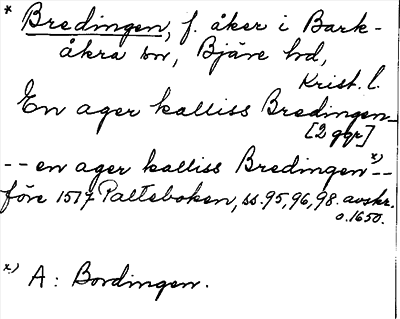 * Bredingen, f. åker i Bark-
åkra sn, Bjäre hd,
Krist. l.
En ager kalliss Bredingen_
[2 ggr]
-- en ager kalliss Bredingen x) --
före 1517 Palteboken, ss. 95, 96, 98. avskr.
o. 1650.
x) A: Bordingen.